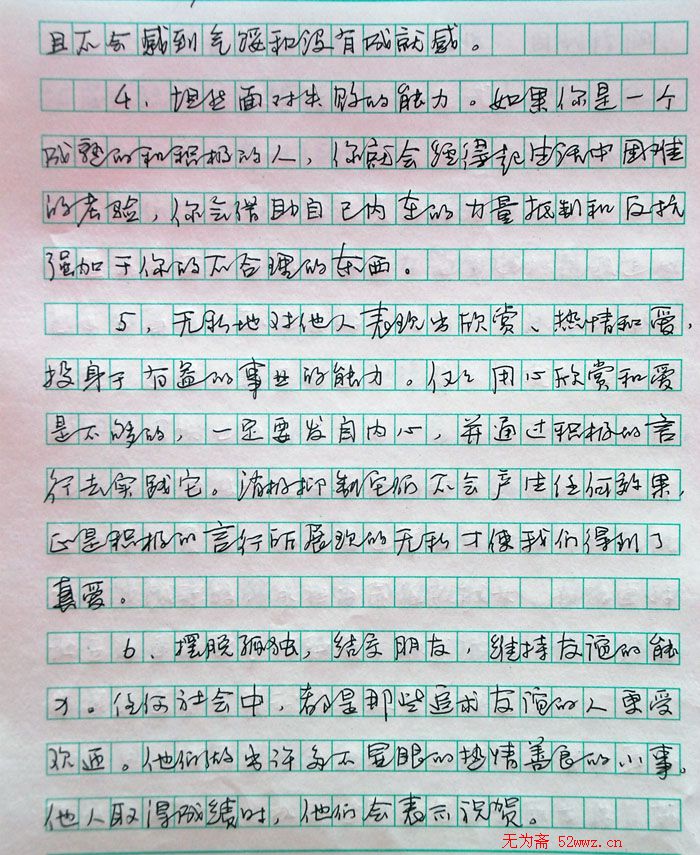 且不会感到气馁和没有成就感。
4、坦然面对失败的能力。如果你是一个
成熟的和积极的人，你就会经得起生活中困难
的考验，你会借助自己内在的力量抵制和反抗
强加于你的不合理的东西。
5、无私地对他人表现出欣赏、热情和爱，
投身于有益的事业的能力。仅仅用心欣赏和爱
是不够的，一定要发自内心，并通过积极的言
行去实践它。消极抑制它们不会产生任何效果，
正是积极的言行所展现的无私才使我们得到了
真爱。
6、摆脱孤独，结交朋友，维持友谊的能
力。任何社会中，都是那些追求友谊的人更受
欢迎。他们做出许多不显眼的热情善良的小事。
他人取得成绩时，他们会表示祝贺。
无为斋 52wwz.cn